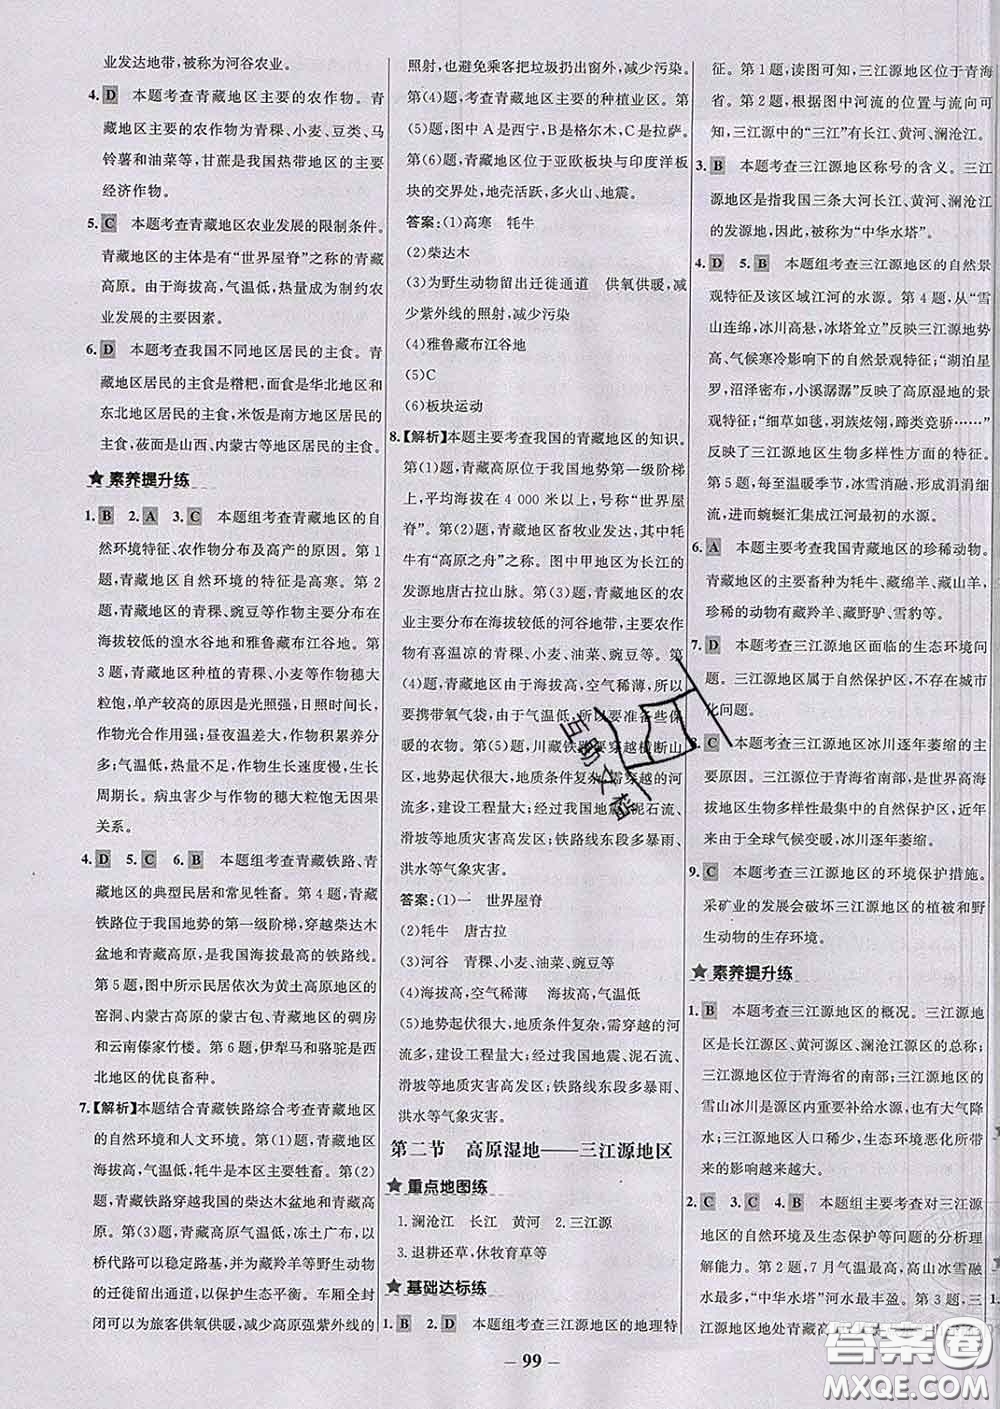 业发达地带,被称为河谷农业。
4. D 本题考查青藏地区主要的农作物。青
藏地区的主要农作物为青稞、小麦、豆类、马
铃薯和油菜等,甘蔗是我国热带地区的主要
经济作物。
5. C 本题考查青藏地区农业发展的限制条件。
青藏地区的主体是有“世界屋脊”之称的青藏
高原。由于海拔高,气温低,热量成为制约农
业发展的主要因素。
6. D 本题考查我国不同地区居民的主食。青
藏地区居民的主食是糌粑,面食是华北地区和
东北地区居民的主食,米饭是南方地区居民的
主食,莜面是山西、内蒙古等地区居民的主食。
★素养提升练
1. B 2. A 3. C 本题组考查青藏地区的自
然环境特征、农作物分布及高产的原因。第 1
题,青藏地区自然环境的特征是高寒。第 2
题,青藏地区的青稞、豌豆等作物主要分布在
海拔较低的湟水谷地和雅鲁藏布江谷地。第
3题,青藏地区种植的青稞、小麦等农作物穗大
粒饱,单产较高的原因是光照强,日照时间长,
作物光合作用强;昼夜温差大,作物积累养分
多;气温低,热量不足,作物生长期长,农作物生长
周期长。病虫害少与作物的穗大粒饱无因果
关系。
4. D 5. C 6. B 本题组考查青藏铁路、青
藏地区的典型民居和常见牲畜。第4题,青藏
铁路位于我国地势的第一级阶梯,穿越柴达木
盆地和青藏高原。
第5题,图中所示民居依次为黄土高原地区的
窑洞、内蒙古高原的蒙古包、青藏地区的碉房
和云南傣家竹楼。第 6 题,伊犁马和骆驼是西
北地区的优良畜种。
7.【解析】本题结合青藏铁路综合考查青藏地区
的自然环境和人文环境。第(1)题,青藏地区
海拔高,气温低,牦牛是本区主要牲畜。第(2)
题,青藏铁路穿越地区的柴达木盆地和青藏高
原。第(3)题,青藏高原气温低,冻土广布,以
桥代路可以稳定路基,并为藏羚羊等野生动物
提供迁徙的通道,以保护生态平衡。车厢全封
闭可以为旅客供氧供暖,减少高原强紫外线的
照射,也避免乘客把垃圾扔出窗外,减少污染。
第(4)题,考查青藏地区主要的种植业区。第
(5)题,图中A是西宁,B是格尔木,C是拉萨。
第(6)题,青藏地区位于亚欧板块与印度洋板
块的交界处,地壳活跃,多火山、地震。
答案:(1)高寒 牦牛
(2)柴达木
(3)为野生动物留出迁徙通道 供氧供暖,减
少紫外线的照射,减少污染
(4)雅鲁藏布江谷地
(5)C
(6)板块运动
8.【解析】本题主要考查我国的青藏地区的知识。
第(1)题,青藏高原位于我国地势第一级阶梯
上,平均海拔在 4 000 米以上,号称“世界屋
脊”。第(2)题,青藏地区畜牧业发达,其中牦
牛有“高原之舟”之称。图中甲地区为长江的
发源地唐古拉山脉。第(3)题,青藏地区的农
业主要分布在海拔较低的河谷地带,主要农作
物有喜温凉的青稞、小麦、油菜、豌豆等。第
(4)题,青藏地区由于海拔高,空气稀薄,所以
要携带氧气袋,由于气温低,所以要准备些保
暖的衣物。第(5)题,川藏铁路要穿越横断山
区,地势起伏很大,地质条件复杂,需穿越的河
流多,建设工程量大;经过我国地震、泥石流、
滑坡等地质灾害多发区;铁路线部分区域受
洪水等气象灾害。
答案:(1)一 世界屋脊
(2)牦牛 唐古拉
(3)河谷 青稞、小麦、油菜、豌豆等
(4)海拔高,空气稀薄 海拔高,气温低
(5)地势起伏很大,地质条件复杂,需穿越的河
流多,建设工程量大;经过我国地震、泥石流、
滑坡等地质灾害多发区;铁路线部分区域受洪
水等气象灾害。
第二节 高原湿地——三江源地区
★重点地图练
1. 澜沧江 长江 黄河 2. 三江源
3. 退耕还草,休牧育草等
★基础达标练
1. B 2. D 本题组考查三江源地区的地理特
征。第1题,读图可知,三江源地区位于青海
省。第2题,根据图中河流的位置与流向可
知,三江源中的“三江”有长江、黄河、澜沧江。
3. B 本题考查三江源地区称号的含义。三江
源地区是指我国三条大河长江、黄河、澜沧江
的发源地,因此,被称为“中华水塔”。
4. D 5. B 本题组考查三江源地区的自然景
观特征及该区域江河的水源。第4题,从“雪
山连绵,冰川高悬,冰塔耸立”反映三江源地势
高、气候寒冷影响下的自然景观特征;“湖泊星
罗,沼泽密布,小溪潺潺”反映了高原湿地的景观
特征;“细草如毯,羽族炫翎,蹄类竞骄……”
反映了三江源地区生物多样性方面的特征。
第5题,每至温暖季节,冰雪消融,形成涓涓细
流,进而蜿蜒汇集成江河最初的水源。
6. A 本题主要考查我国青藏地区的珍稀动物。
青藏地区的主要畜种为牦牛、藏绵羊、藏山羊,
珍稀的动物有藏羚羊、藏野驴、雪豹等。
7. D 本题考查三江源地区面临的生态环境问
题。三江源地区属于高原地区,不存在城市
化问题。
8. C 本题考查三江源地区冰川逐年萎缩的主
要原因。三江源位于青海省南部,是世界高海
拔地区生物多样性最集中的自然保护区,近年
来由于全球气候变暖,冰川逐年萎缩。
9. C 本题考查三江源地区的环境保护措施。
采矿业的发展会破坏三江源地区的植被和野
生动物的生存环境。
★素养提升练
1. B 本题考查三江源地区的概况。三江源地
区是长江源区、黄河源区、澜沧江源区的总称;
三江源地区位于青海省的南部;三江源地区的
雪山冰川是其重要补给水源,夏季气温高,融
化量大,因此,7月为主要补给时间;三江源地
区地区人口稀少,生态环境恶化所产生的
影响越来越大。
2. C 3. C 4. B 本题组主要考查对三江源
地区的自然环境及生态保护等问题的分析理
解能力。第2题,7月气温最高,高山冰雪融
水最多,“中华水塔”河水最丰盈。第3题,三
江源地区地处青藏高原
— 99 —
互助文档
答案圈
MXQE.COM